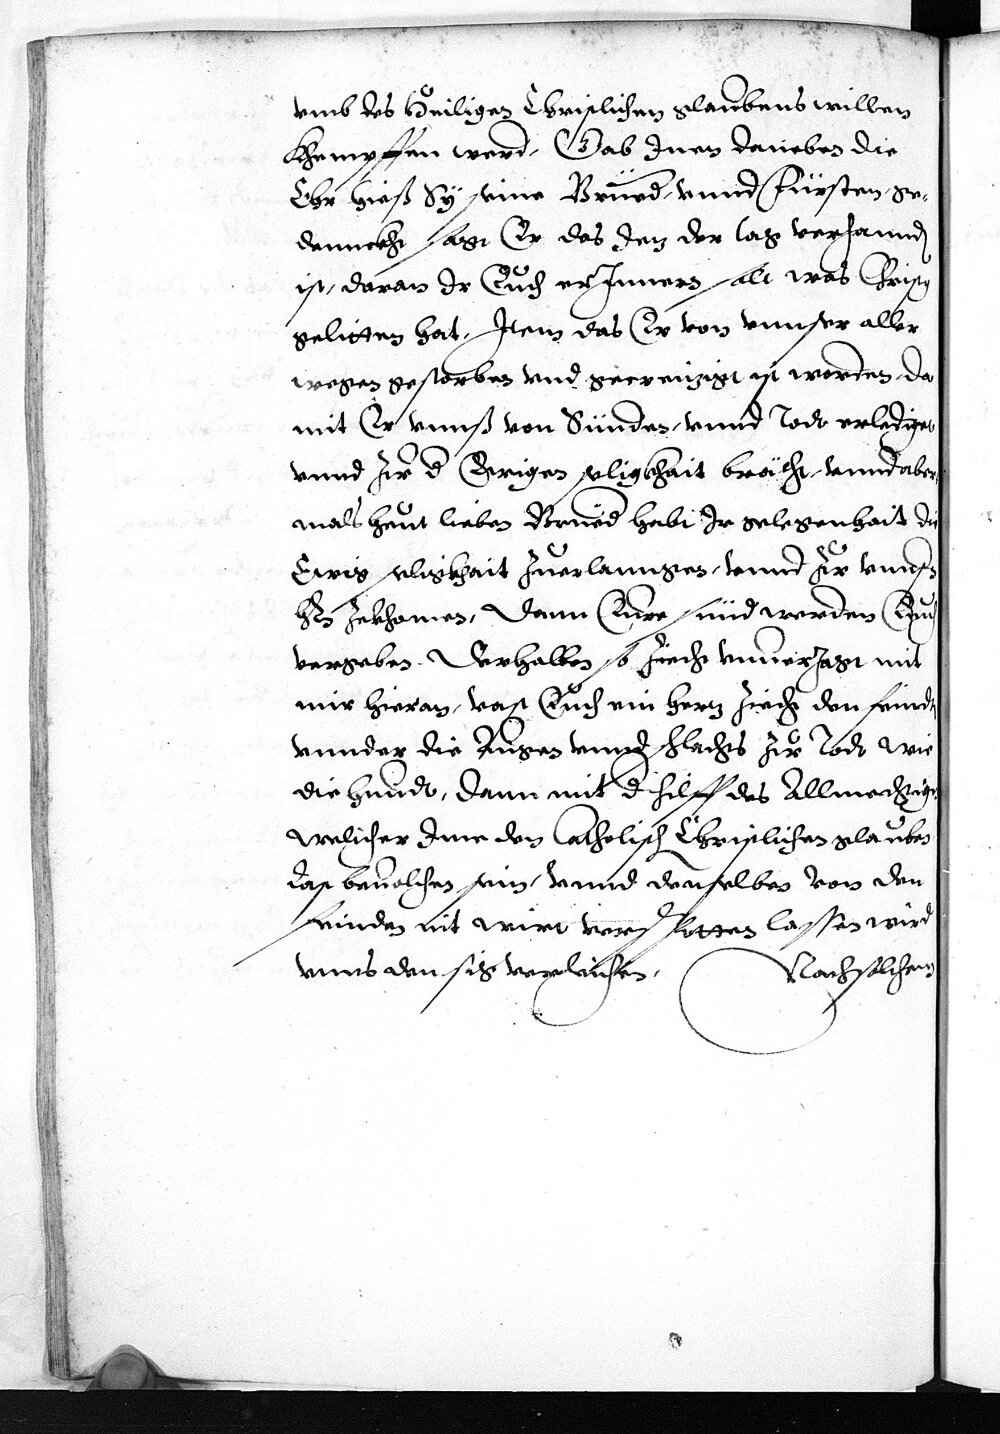 vmb des Heiligen Christlichen glaubens willen
Khempffen werd, Gab Inen daneben die
Ehr hieß Sy seine Brued, vnnd Fürsten, ge-
dennckht sagt Er das Iez der tag verhannd
ist, daran Ir Euch erInnern solt was Christ
gelitten hat, Item das Er von vnnser aller
wegen gestorben vnd gecreuzigt ist worden, da
mit Er vnnß von Sünden, vnnd Todt erlediget
vnnd Zur d Ewigen seligkhait brächt, vnnd aber-
mals heut lieben Brued habt Ir gelegenhait die
Ewig seligkhait Zuerlanngen, vnnd Zur vnnsn
hrn Zekhomen, Dann Eure sünd werden Euch
vergeben. Derhalben so Ziecht vnuerZagt mit
mir hieran, vast Euch ein herz Ziecht den feindt
vnnder die Augen vnnd schlachts Zur Todt wie
die hundt, dann mit d hilff des Allmechtigen
welicher Ime den Catholisch Christlichen glauben
last beuolchen sein, vnnd denselben von den
feinden nit wirt verspotten lassen wird
vnns den sig verleichen, Nach solchem